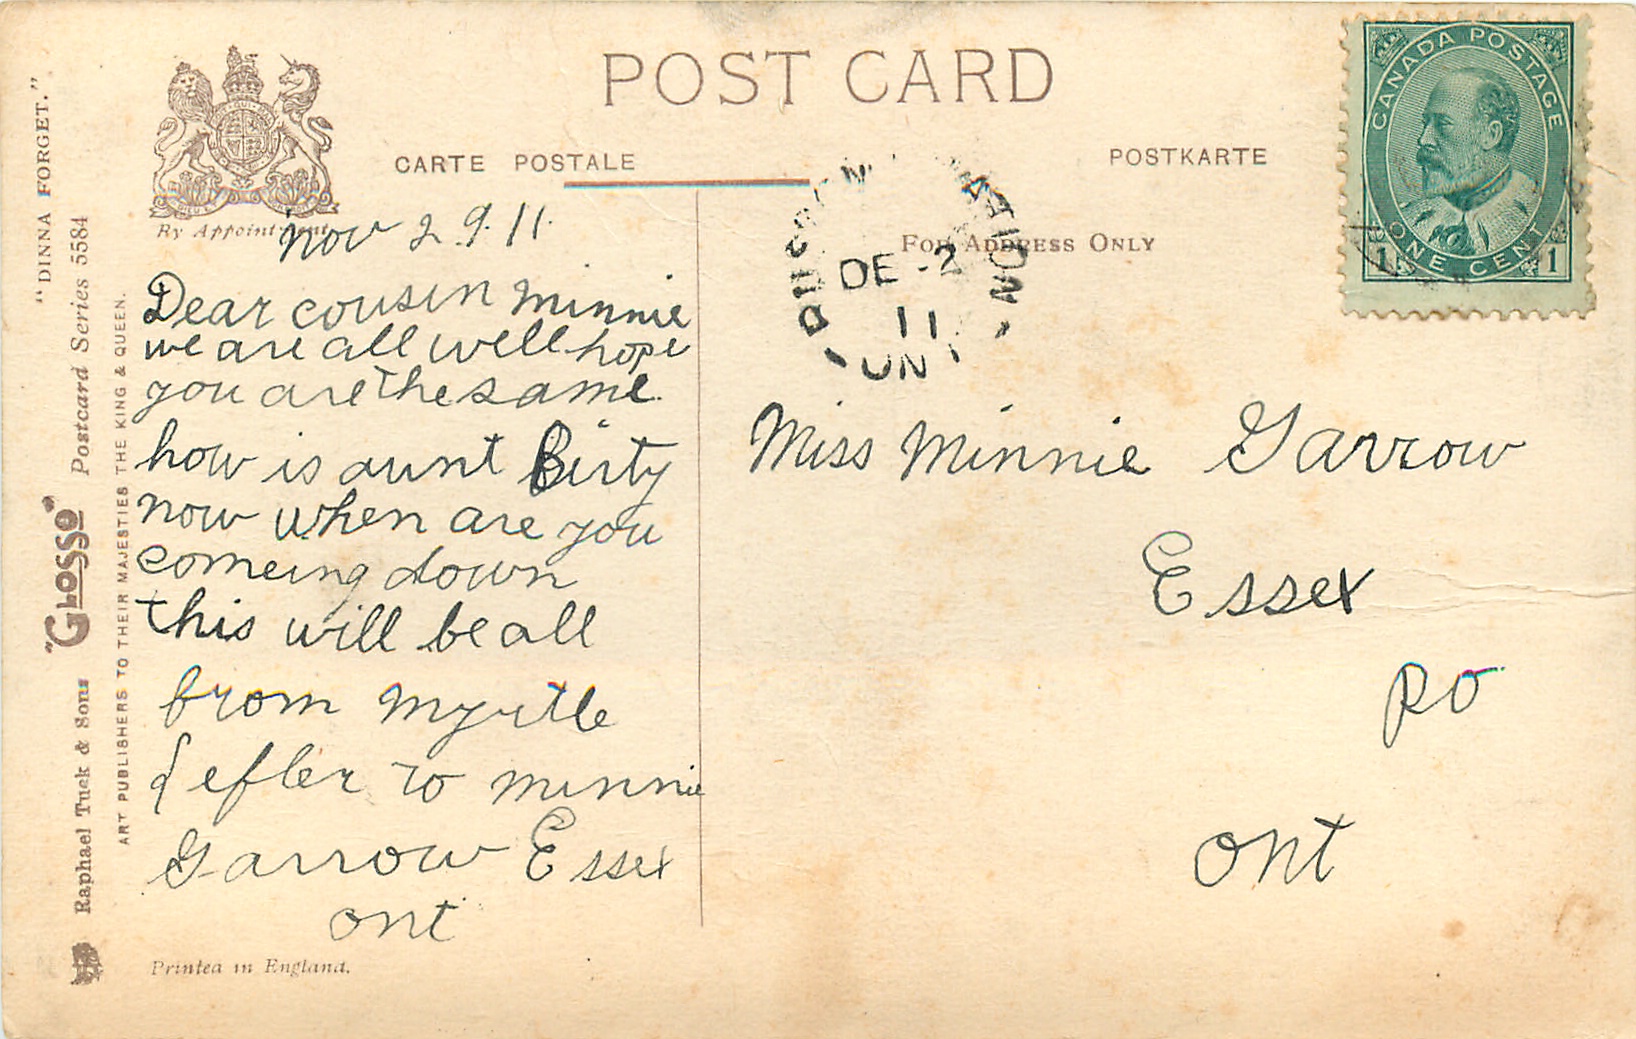 POST CARD
CARTE POSTALE
POSTKARTE
FOR ADDRESS ONLY
By Appointment
CANADA POSTAGE
ONE CENT
1 1
DE - 2
11
ONT
Nov 29. 11.
Dear cousin Minnie
we are all well hope
you are the same.
how is aunt Birty
now when are you
comeing down
this will be all
from Myrtle
Lefler to Minnie
Garrow Essex
ont
Miss Minnie Garrow
Essex
PO
ont
"DINNA FORGET."
Raphael Tuck & Sons "GLOSSO" Postcard Series 5584
ART PUBLISHERS TO THEIR MAJESTIES THE KING & QUEEN.
Printed in England.